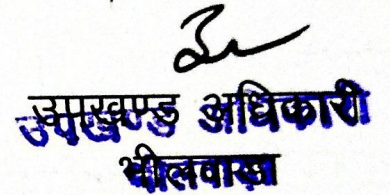 उपखण्ड अधिकारी
भीलवाडा